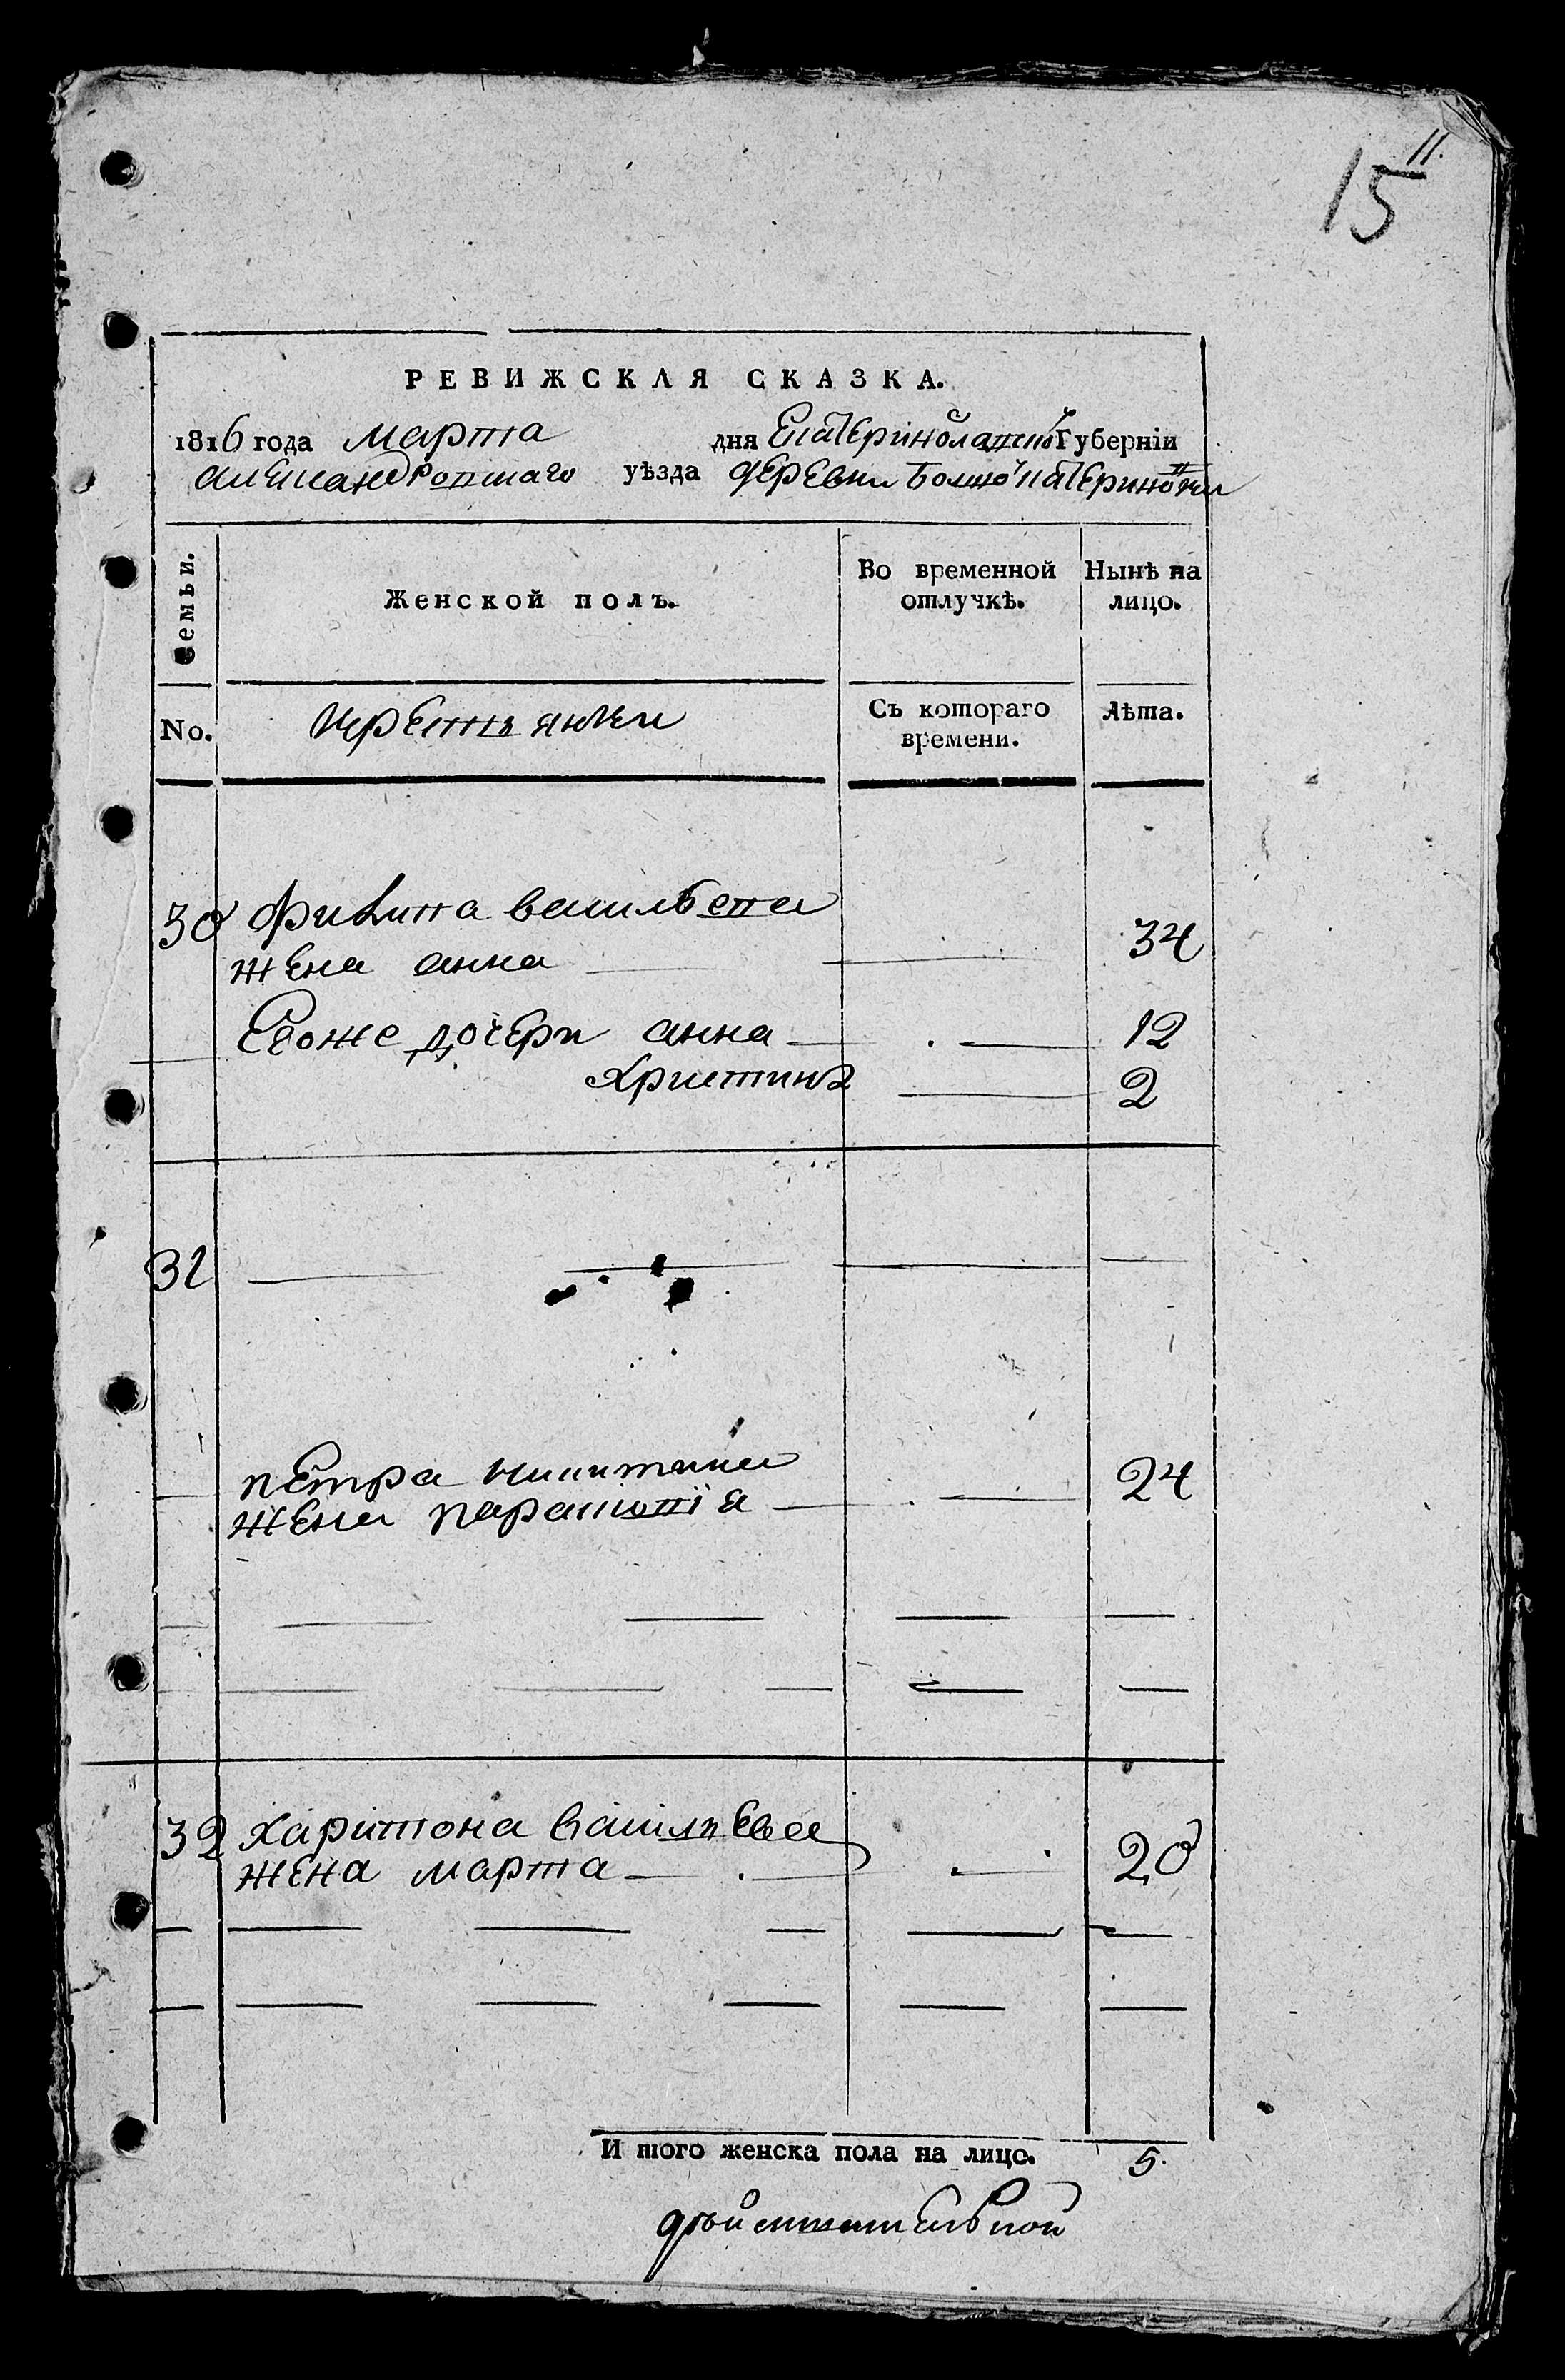 11.
15
РЕВИЖСКАЯ СКАЗКА.
1816 года марта дня Екатеринославской Губерніи
александровскаго уѣзда деревни
Семьи.
Женской полъ.
Во временной отлучкѣ.
Нынѣ на лицо.
No.
крестьянки
Съ котораго времени.
Лѣта.
30 Филипа васильева
жена анна 34
Егоже дочери анна 12
Христина 2
31
петра никитина
жена парасковія 24
32 харитона васильева
жена марта 20
И того женска пола на лицо. 5.